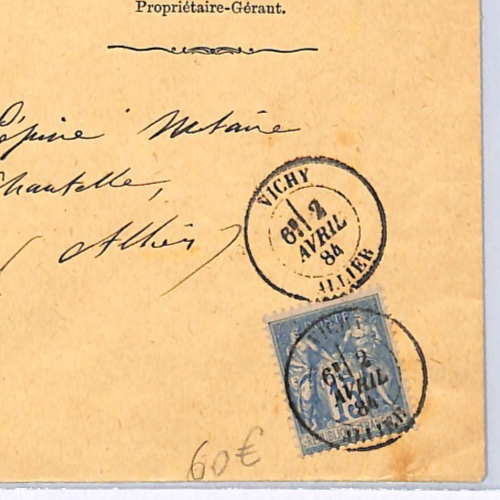 Propriétaire-Gérant.
Lépine Notaire
Chantelle,
(Allier)
VICHY
6E 2
AVRIL
84
ALLIER
VICHY
6E 2
AVRIL
84
ALLIER
60€